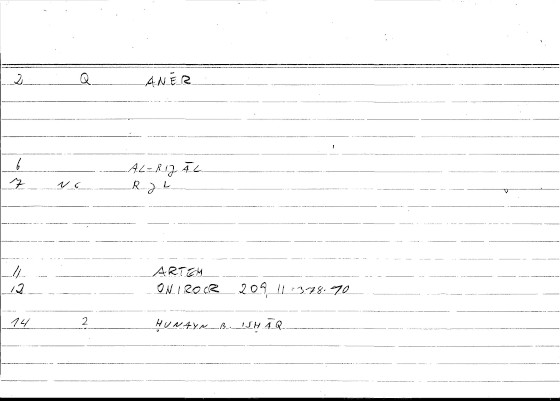 2 Q ANĒR
6 AL-RIJĀL
7 NC RJL
11 ARTEM
12 ONIROCR 209, 11.378.10
14 2 ḤUNAYN B. ISḤĀQ